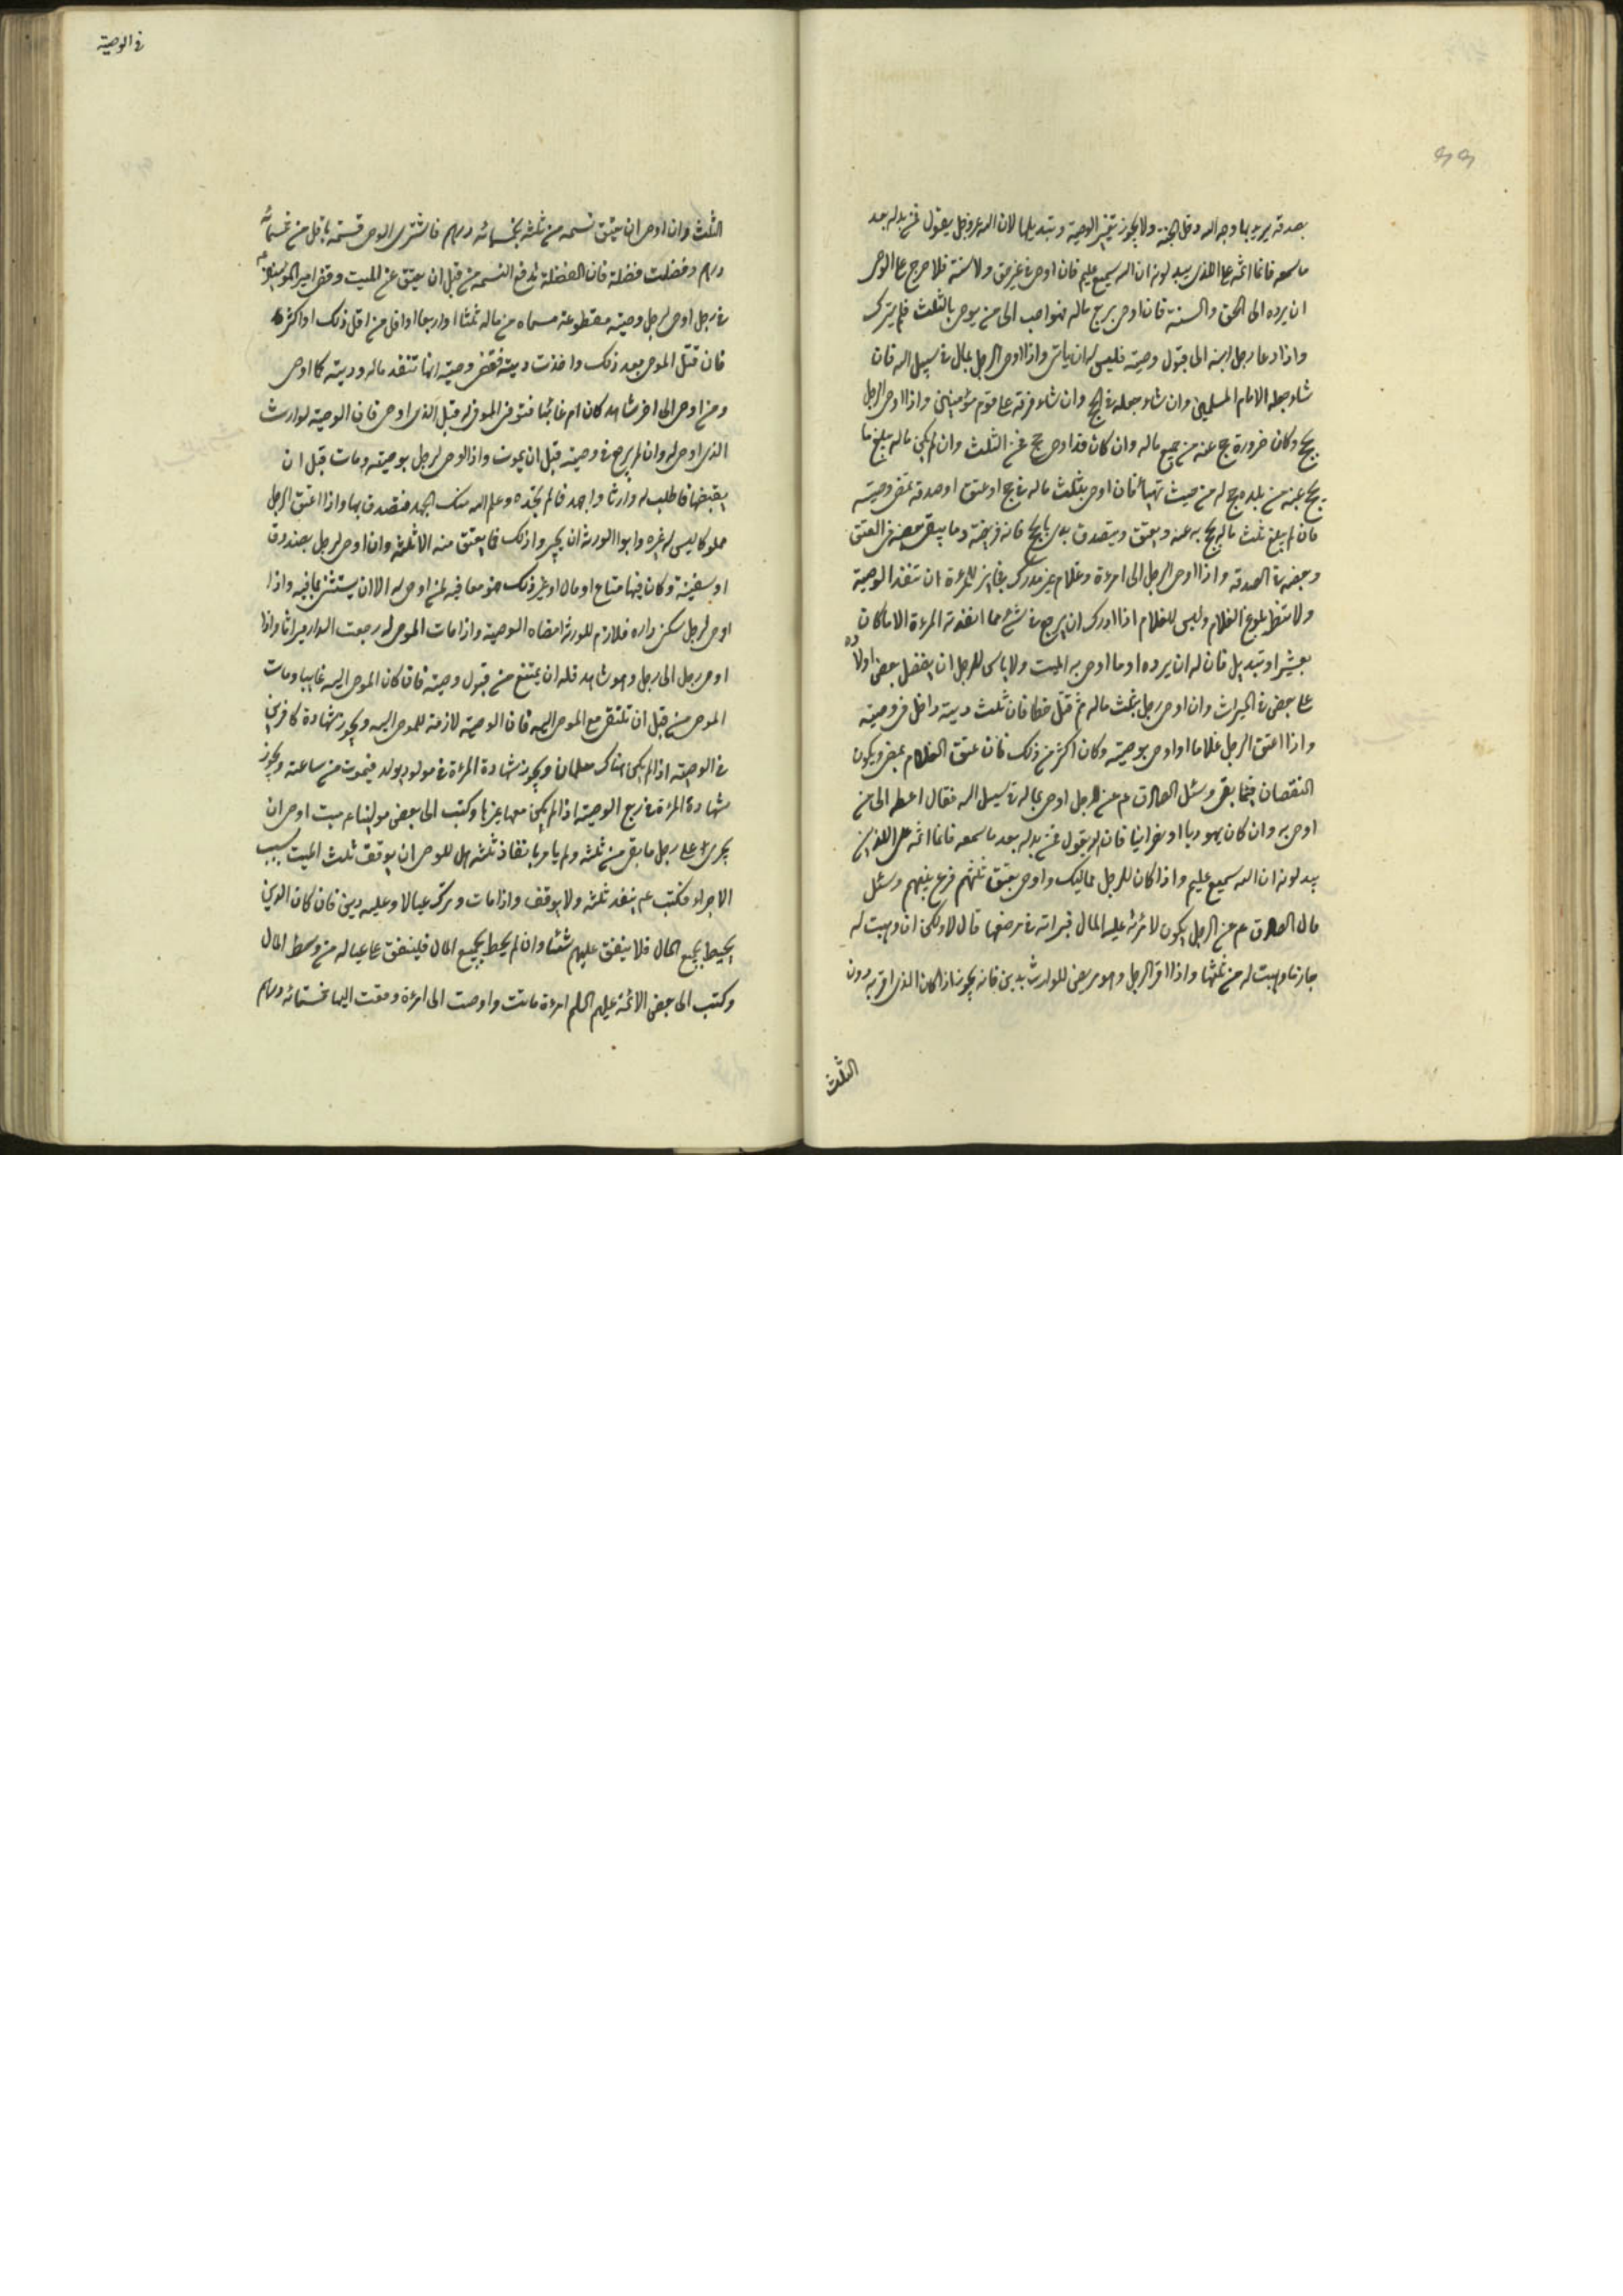 بصدقة يريد بها وجه الله دخل الجنة ولا يجوز تغيير الوصية وتبديلها لان الله عزوجل يقول فمن بدله بعد
ما سمعه فانما اثمه على الذين يبدلونه ان الله سميع عليم فان اوصى في غير حق ولا سنة فلا حرج على الوصي
ان يرده الى الحق والسنة فان اوصى بربع ماله فهو احب الى من يوصى بالثلث فلم يترك
واذا دعا رجل ابنه الى قبول وصيته فليس له ان يابى واذا اوصى الرجل بمال في سبيل الله فان
شاء جعله الامام المسلمين وان شاء جعله في الحج وان شاء فرقه على قوم مؤمنين واذا اوصى الرجل
بحج وكان ضرورة حج عنه من جميع ماله وان كان قد اوصى حج فمن الثلث وان لم يكن ماله مبلغ ما
يحج عنه من بلده حج له من حيث تهيأ فان اوصى بثلث ماله في حج او عتق او صدقة تمضى وصيته
فان لم يبلغ ثلث ماله يحج به عنه ويعتق ويتصدق بدى بالحج فانه فريضة وما يبقى بعضه فى العتق
وبعضه في الصدقة واذا اوصى الرجل الى امرءة وغلام غير مدرك فجايز للمرءة ان تنفذ الوصية
ولا تنتظر بلوغ الغلام وليس للغلام اذا ادرك ان يرجع في شيء مما انفذته المرءة الا ما كان
بغير او تبديل فان له ان يرده او ما اوصى به الميت ولا باس للرجل ان يفضل بعض اولاده
على بعض في الميراث وان اوصى رجل بثلث ماله ثم قتل خطا فان ثلث ديته داخل فى وصيته
واذا اعتق الرجل غلاما او اوصى بوصية وكان اكثر من ذلك فان عتق الغلام يمضى ويكون
النقصان فيما بقى وسئل الصادق ع م عن الرجل اوصى بماله في سبيل الله فقال اعطه الى من
اوصى به وان كان يهوديا او نصرانيا فان الله يقول فمن بدله بعد ما سمعه فانما اثمه على الذين
يبدلونه ان الله سميع عليم واذا كان للرجل مماليك واوصى بعتق ثلثهم قرع بينهم وسئل
مال الصادق ع م عن الرجل يكون لامرئته عليه المال فبراته في مرضها قال لا ولكن ان وهبت له
جاز ما وهبت له من ثلثها واذا اقر الرجل وهو مريض للوارث بدين فانه يجوز اذا كان الذى اقر به دون
الثلث
في الوصية
الثلث وان اوصى ان يعتق نسمه من ثلثه بخمسمائه درهم فاشترى الوصى نسمة باقل من خمسمائه
درهم وفضلت فضلة فان الفضلة تدفع النسمه من قبل ان يعتق عن الميت وقضى امير المؤمنين
في رجل اوصى لرجل وصية مقطوعة مسماه من ماله ثلثا او اربعا او اقل من اقل ذلك او اكثر
فان قتل الموصى بعد ذلك واخذت ديته فقضى وصيته انها تنفذ ماله وديته كما اوصى
ومن اوصى الى اخر شاهد كان ام غائبا فتوفى الموصى له قبل الذى اوصى فان الوصية لوارث
الذى اوصى له وان لم يرجع في وصيته قبل ان يموت واذا اوصى لرجل بوصية ومات قبل ان
يقبضها فاطلب له وارثا واجهد فالم تجده وعلم الله منك الجهد فتصدق بها واذا اعتق الرجل
مملوكا ليس له غيره وابوا الورثة ان يجيزوا ذلك فما يعتق منه الا ثلثه وان اوصى لرجل بصندوق
او سفينة وكان فيها متاع او مال او غير ذلك هو معا فيه لمن اوصى له الا ان يستثنى بما فيه واذا
اوصى لرجل سكنى داره فلازم للورثة امضاه الوصية واذا مات الموصى له رجعت الدار ميراثا واذا
اوصى رجل الى رجل وهو شاهد فله ان يمتنع من قبول وصيته فان كان الموصى اليه غايبا ومات
الموصى من قبل ان تلتقى مع الموصى اليه فان الوصية لازمة للموصى اليه ويجوز شهادة كافرين
في الوصية اذا لم يكن هناك مسلمان ويجوز شهادة المرءة في مولود يولد فيموت من ساعته ويجوز
شهادة المرءة في ربع الوصية اذا لم يكن معها غيرها وكتب الى بعض موالينا ع م ميت اوصى ان
يجرى على رجل ما بقى من ثلثه ولم يامر بانفاذ ثلثه هل للوصى ان يوقف ثلث الميت بسبب
الاجراء فكتب ع م ينفذ ثلثه ولا يوقف واذا مات وترك عيالا وعليه دين فان كان الدين
يحيط بجميع المال فلا ينفق عليهم شيئا وان لم يحيط بجميع المال فلينفق على عياله من وسط المال
وكتب الى بعض الائمة عليهم السلم امرءة ماتت واوصت الى امرءة دفعت اليها خمسمائه درهم